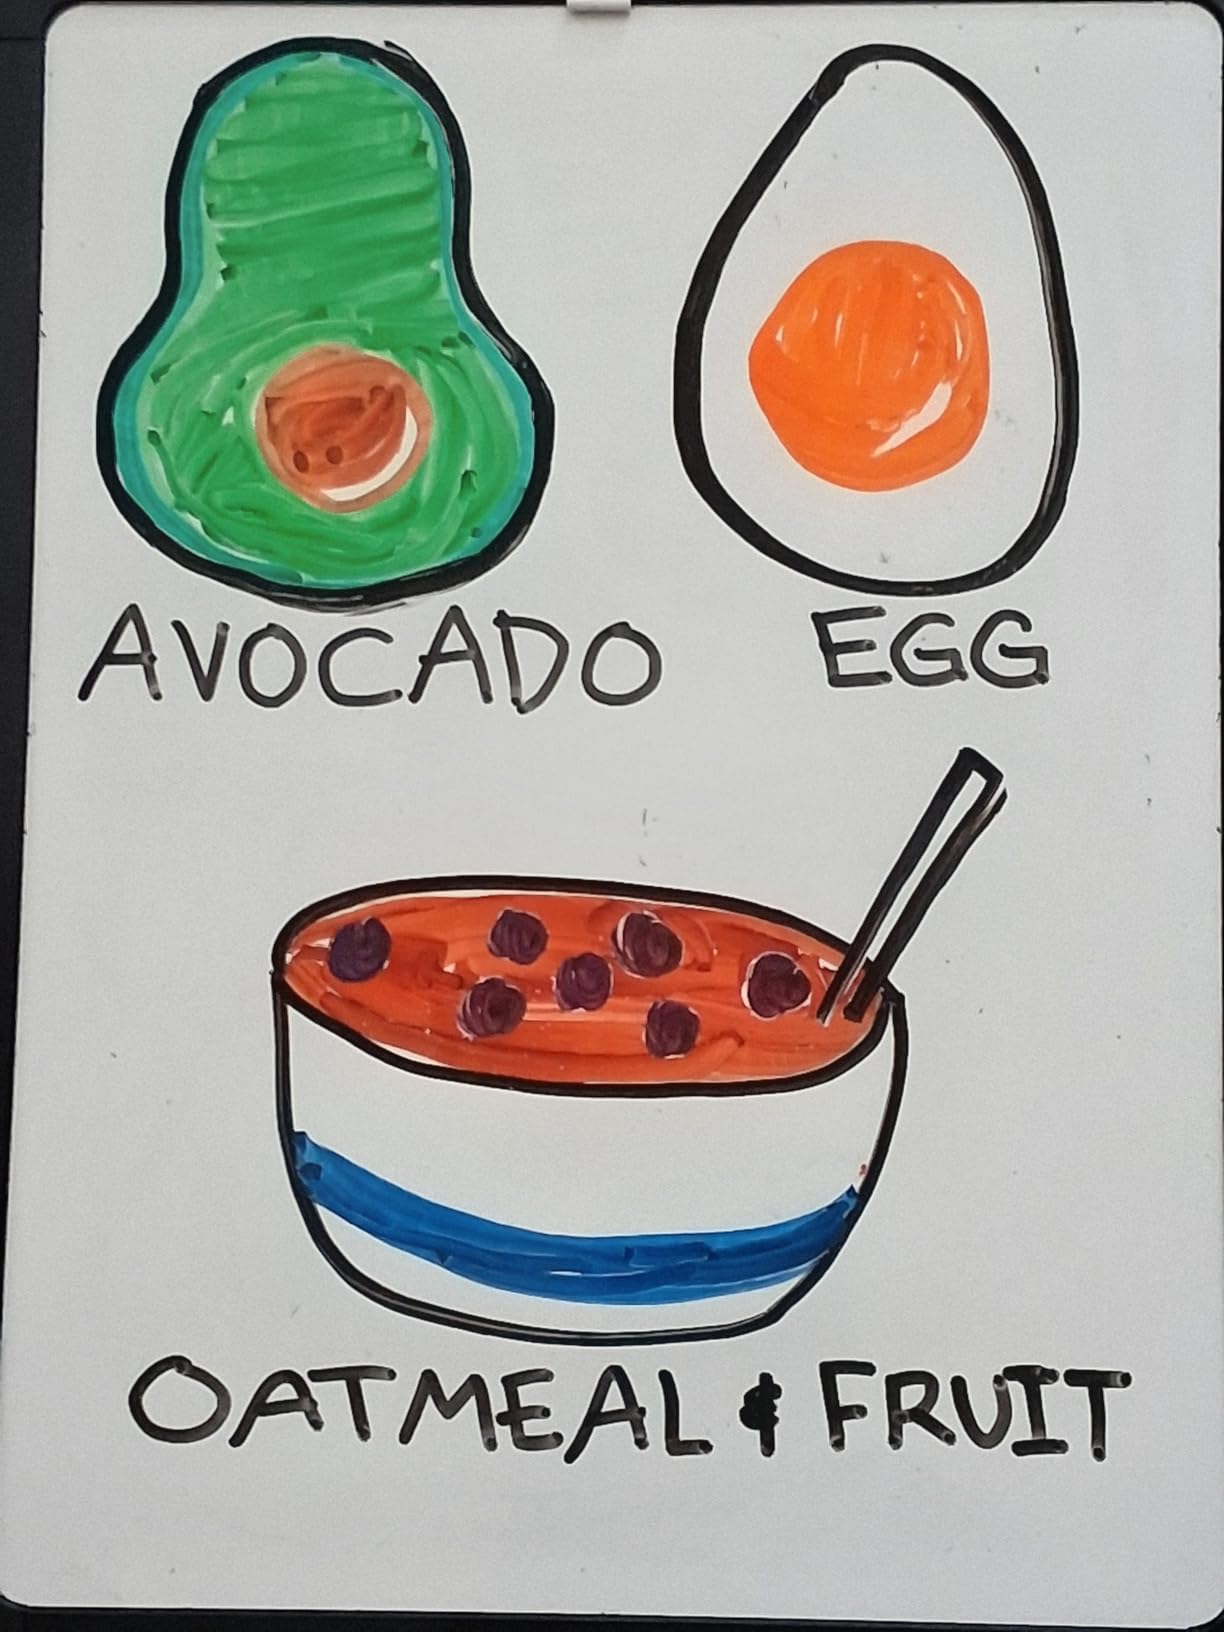 AVOCADO
EGG
OATMEAL & FRUIT